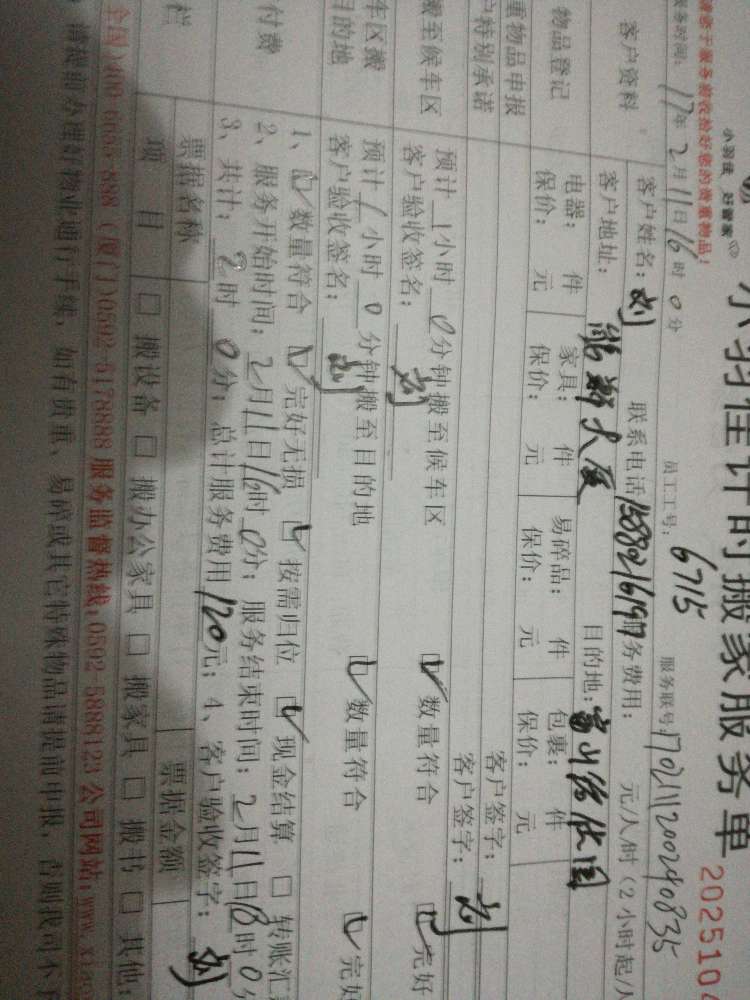 小羽佳 好管家
小羽佳计时搬家服务单
2025104
请您于服务前收拾好您的贵重物品！
服务时间：17年2月11日16时0分 员工工号：6715 服务联号：170211200240835
客户资料 客户姓名：刘 联系电话 服务费用： 元/人/时（2小时起/
客户地址：熊猫大厦 目的地：
物品登记 电器： 件 家具： 件 易碎品： 件 包裹： 件
保价： 元 保价： 元 保价： 元 保价： 元
重物品申报 客户签字：
户特别承诺 客户签字：刘
搬至候车区 预计1小时0分钟搬至候车区 数量符合 完好
客户验收签名：刘
车区搬 预计1小时0分钟搬至目的地 数量符合 完好
目的地 客户验收签名：刘
付费 1、数量符合 完好无损 按需归位 现金结算 转账汇
2、服务开始时间：2月11日16时0分；服务结束时间：2月11日18时0分
3、共计：2时0分；总计服务费用120元；4、客户验收签字：刘
栏 票据名称 票据金额
项目 搬设备 搬办公家具 搬家具 搬书 其他：
全国）400-6655-888（厦门）0592-6178888 服务监督热线：0592 5888123 公司网站：www.xi
请提前办理好物业通行手续，如有贵重、易碎或其它特殊物品请提前申报，否则我司不